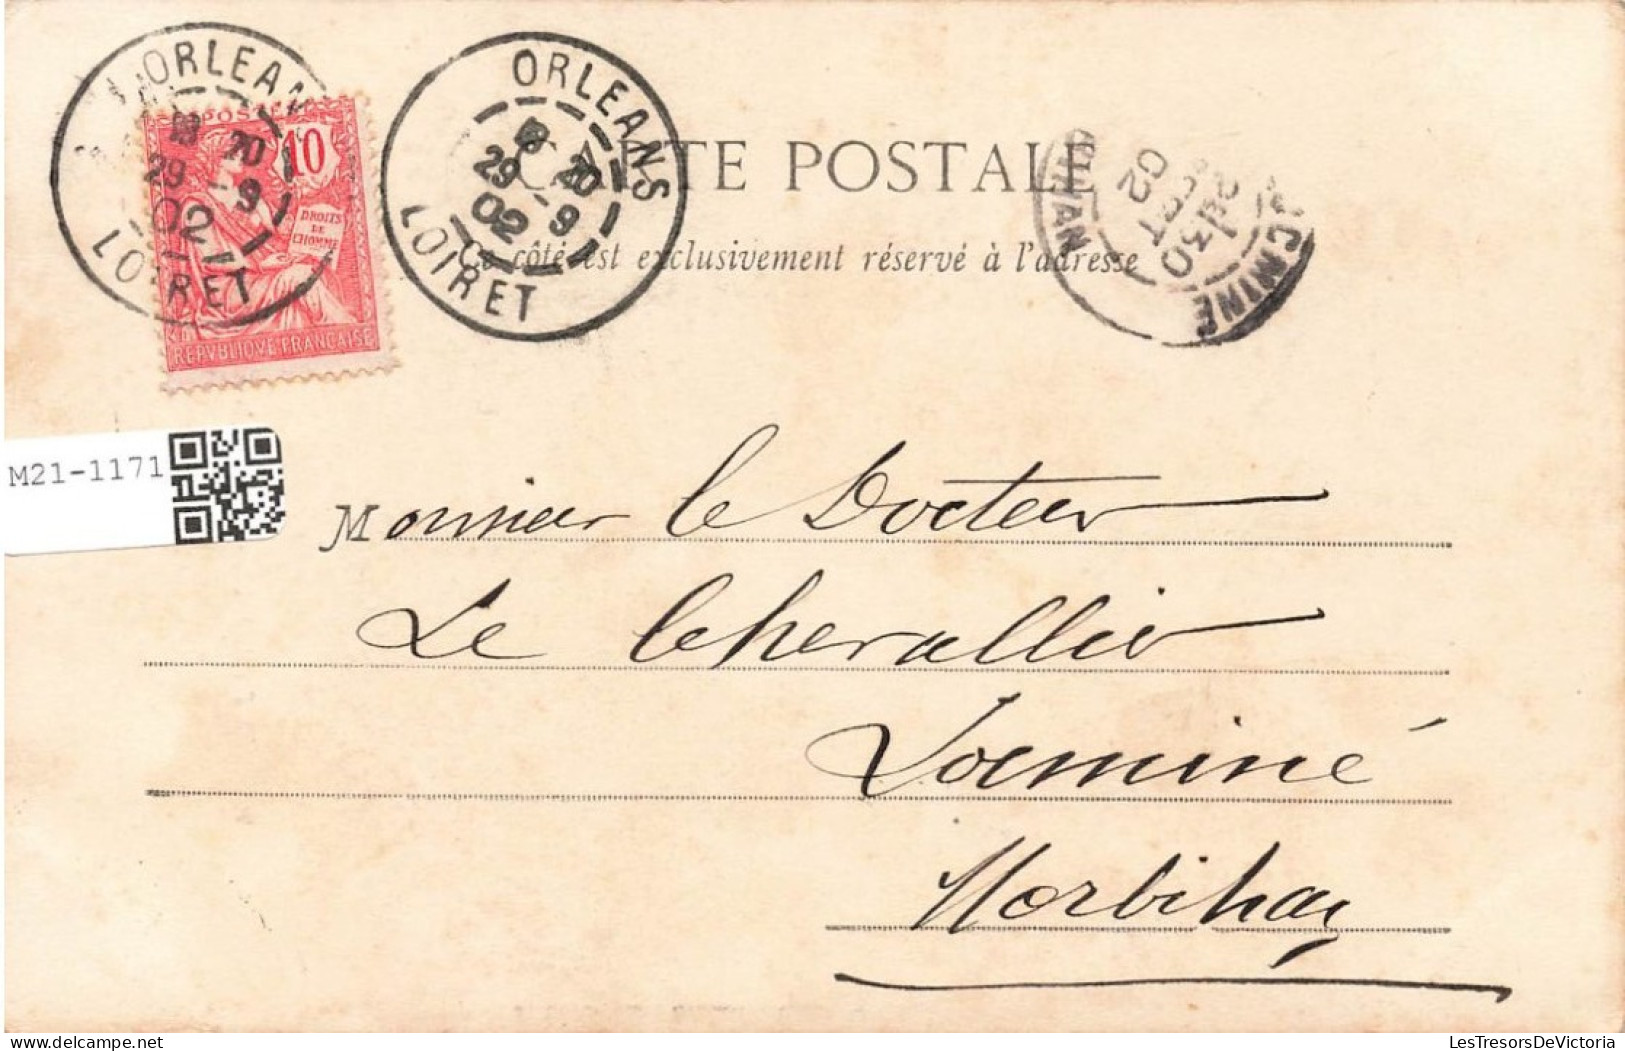 ORLEANS
8 20
29 - 9
02
LOIRET
POSTES
10
DROITS
DE
L'HOMME
REPVBLIQVE FRANCAISE
ORLEANS
8 20
29 - 9
02
LOIRET
CARTE POSTALE
Ce côté est exclusivement réservé à l'adresse
30
02
M21-1171
Monsieur le Docteur
Le Chevallier
Locminé
Morbihan
LesTresorsDeVictoria - delcampe.net